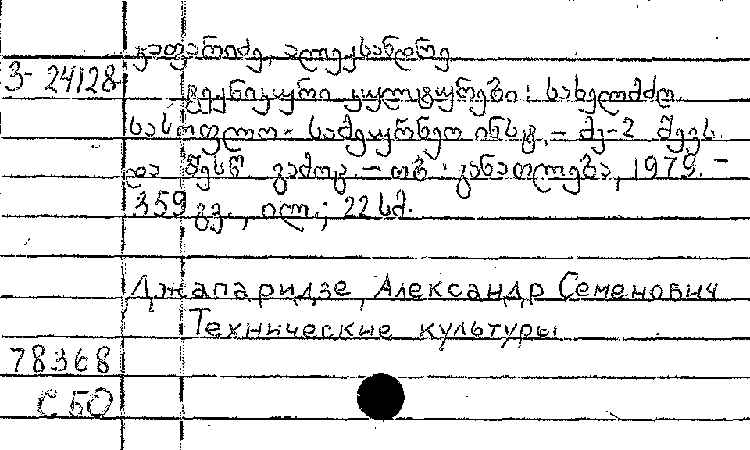 ჯაფარიძე, ალექსანდრე
3- 24128
ტექნიკური კულტურები : სახელმძღ.
სასოფლო-სამეურნეო ინსტ. – მე-2 შევს.
და შესწ. გამოც. – თბ. : განათლება, 1979. –
359 გვ., ილ.; 22 სმ.
Джапаридзе, Александр Семенович
Технические культуры
78368
С 50